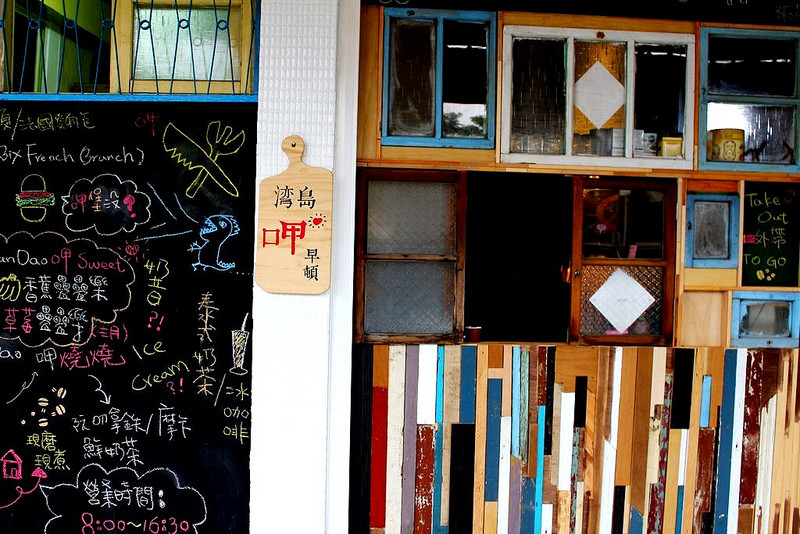 呷
Bix French Brunch)
呷堡沒?
anDao 呷 Sweet
香蕉疊疊樂
草莓疊疊樂(主月)
呷燒燒
奶昔
?!
Ice
Cream
?!
泰式奶茶
/冰咖啡
拿鐵/摩卡
鮮奶茶
現磨
現煮
營業時間:
8:00~16:30
湾島
呷
早頓
Take
Out
外帶
TO GO